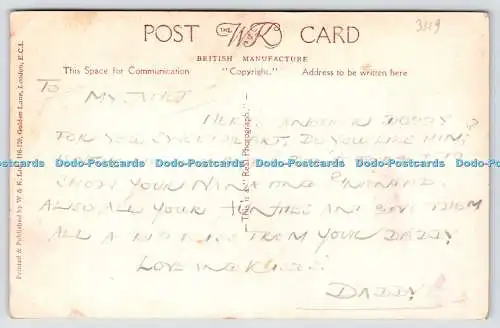 POST THE W&K SERIES CARD
3119
BRITISH MANUFACTURE
This Space for Communication "Copyright." Address to be written here
TO
MY
HERES ANOTHER DOGGY
FOR YOU SWEETHEART. DO YOU LIKE HIM?
Dodo-Postcards Dodo-Postcards Dodo-Postcards Dodo-Postcards
SHOW YOUR NANA AND
ALSO ALL YOUR AND GIVE THEM
Dodo-Postcards Dodo-Postcards Dodo-Postcards Dodo-Postcards
ALL A FROM YOUR DADDY
LOVE AND KISSES
DADDY
This is a "Real Photograph."
Printed & Published by W & K. Ltd. 116/20, Golden Lane, London, E.C.1.